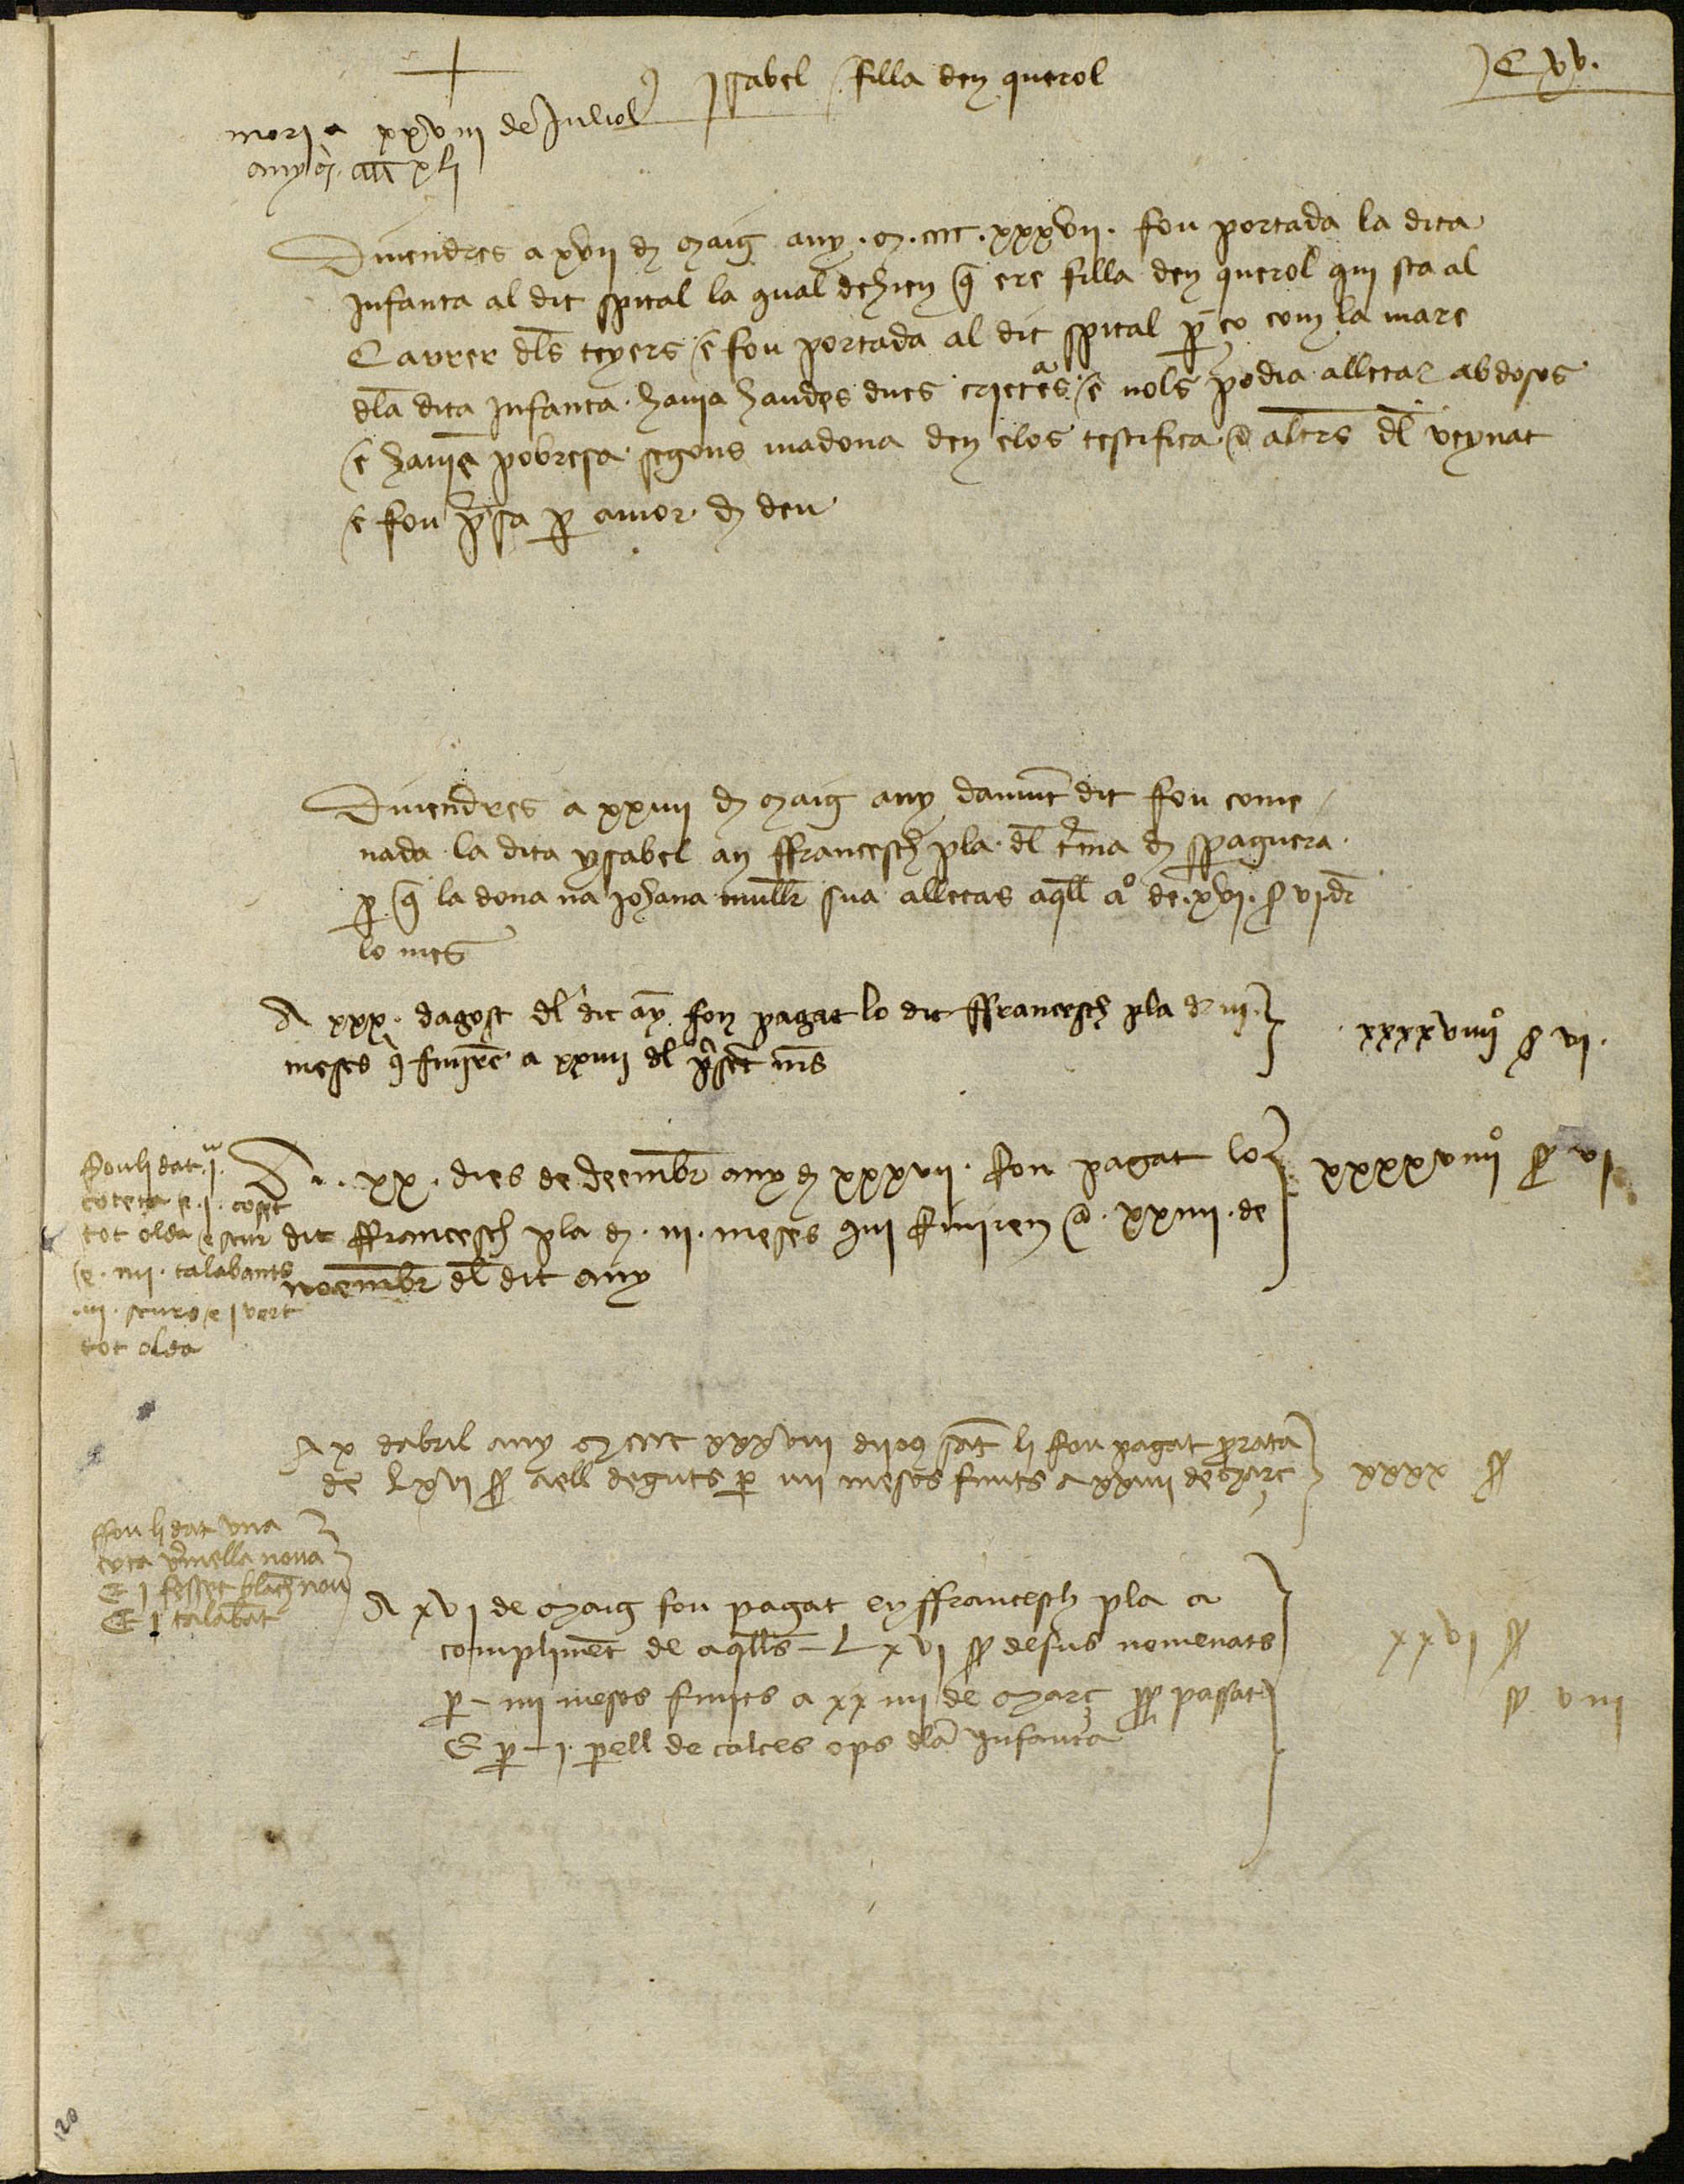 C xv.
Isabel filla den querol
mori a xxviii de Juliol
any xli
Divendres a xvii de maig any .m.cccc.xxxvii. fou portada la dita
Infanta al dit spital la qual dehien q̄ ere filla den querol qui sta al
Carrer dl̄s teyers e fou portada al dit spital p̄ ço com la mare
dl̄a dita Infanta havia haudes dues criet^aes e nols podia alletar abdoses
e havie pobresa segons madona den clos testifica e altr̄s dl̄ veynat
e fou p̄sa p̄ amor de deu
Divendres a xxiiii de maig any damūt dit fou come
nada la dita ysabel an ffrancesch pla dl̄ t̄me de spaguera
p̄ q̄ la dona na Johana mull̄r sua alletas aq̄ll a^o de .xvi. s vi dr̄
lo mes
A xxx. dagost dl̄ dit āy fon pagat lo dit ffrancesch pla de iii
meses q̄ finirē a xxiiii dl̄ p̄sēt m̄s
xxxxviiii^o s vi.
Fouli dat .i.
coteta e .i. cosset
tot olda escur
e .iiii. talabants
.iii. scurs e i vert
tot olda
A .xx. dies de deembr̄ any de xxxvii. fou pagat lo
dit ffrancesch pla de .iii. meses qui finiren a .xxiiii. de
noembr̄ dl̄ dit any
xxxxviiii^o s vi
A x dabril any m cccc xxxviii dijos sāt li fou pagat prorata
de Lxvi s aell deguts p̄ iiii mesos finits a xxiiii de març
xxxx s
ffou li dat una
cota v̄mella nova
E i fosset blāch nou
E i talabāt
A xvi de maig fou pagat en ffrancesch pla a
complimēt de aq̄lls Lxvi s desus nomenats
p̄ iiii mesos finits a xxiiii de març pp̄ passat
E p̄ i. p̄ell de calces ops dl̄a Infanta
xxvi s
s viii
120